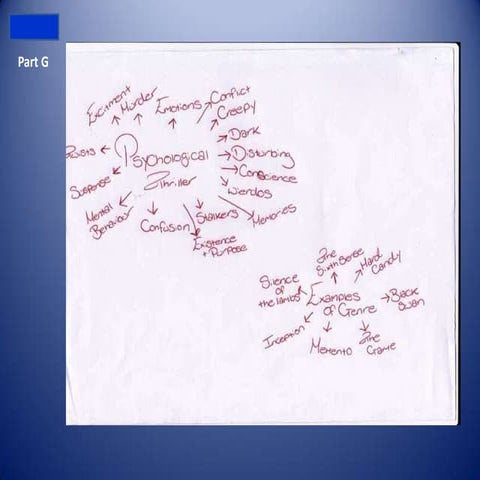 Part G
Excitment
Murder
Emotions
Conflict
Creepy
Dark
Disturbing
Conscience
Weirdos
Memories
Stalkers
Existence
+ Purpose
Confusion
Mental
Behaviour
Suspense
Psychological
Thriller
Examples
of Genre
The
Sixth Sense
Hard
Candy
Black
Swan
The
Game
Memento
Inception
Silence
of
the lambs